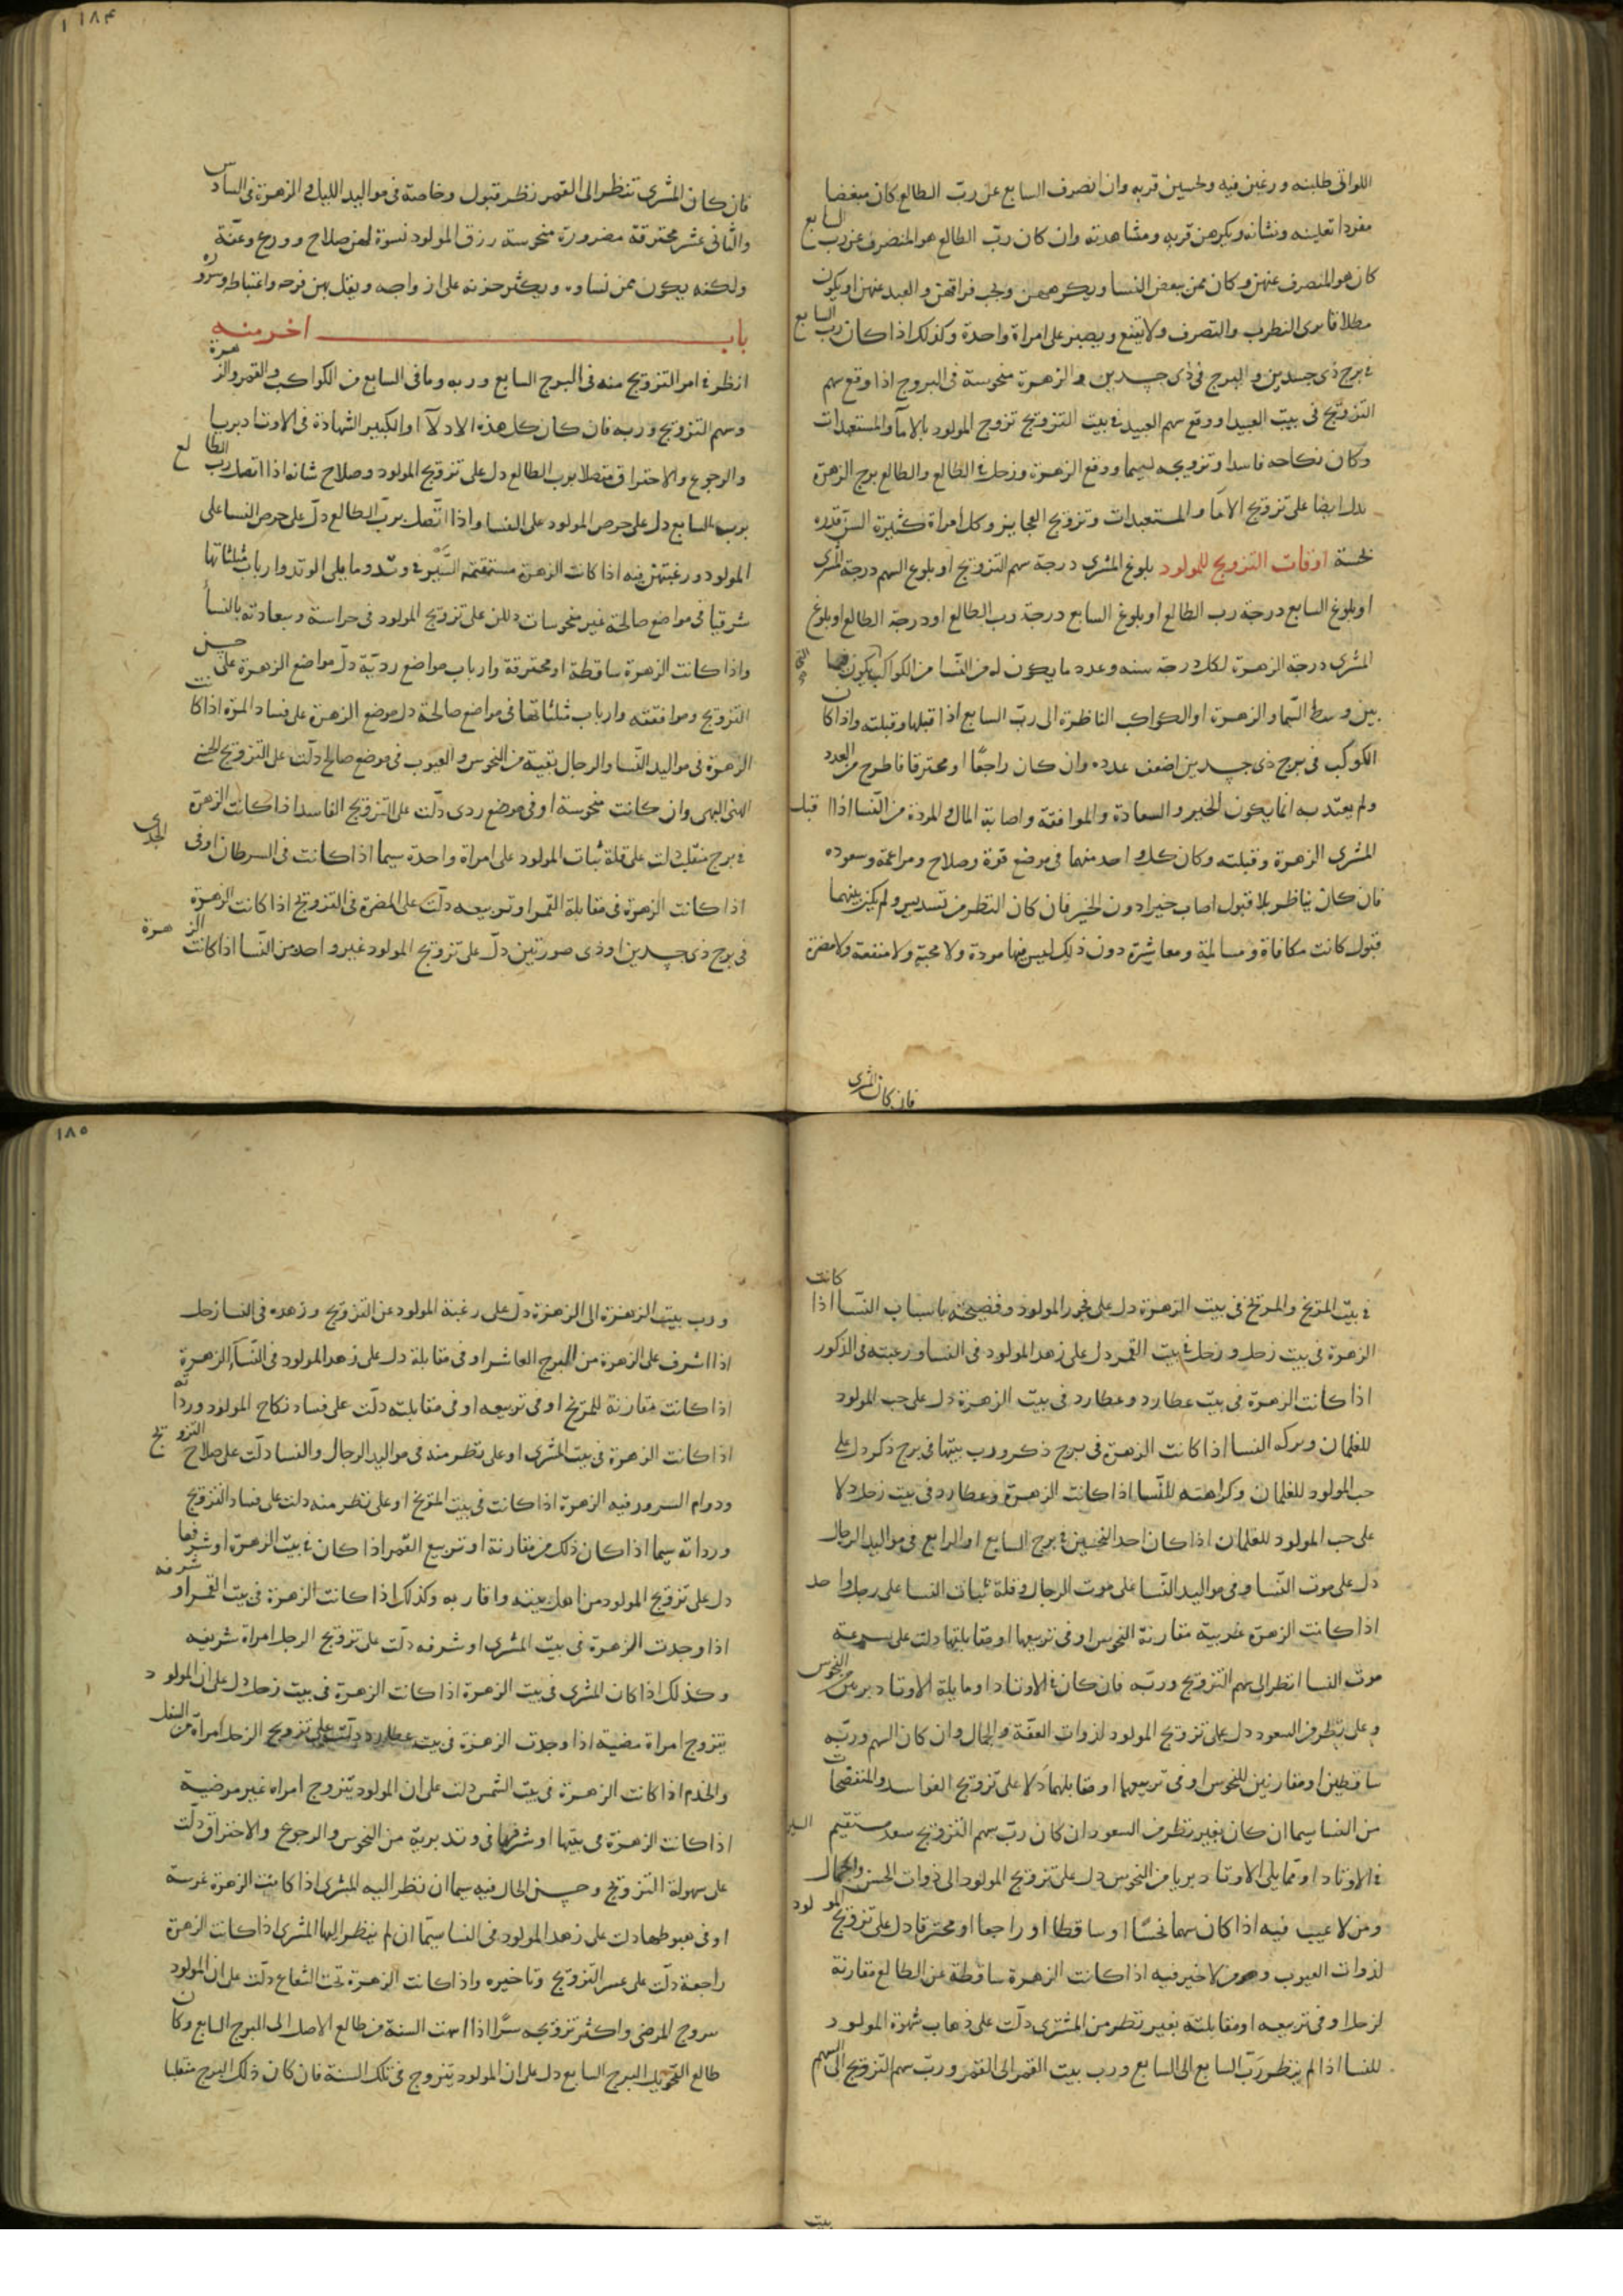 اللواتى طلبنه ورغبن فيه ولحسين قربه وان انصرف السابع عن ربّ الطالع كان مبغضا
مفردا تعلينه ونشانه ويكرهن قربه ومشاهدته وان كان ربّ الطالع هو المنصرف عن رب السابع
كان هو المنصرف عنهن وكان ممن يبغض النسا ويكرههن ويحب فراقهن والبعد عنهن او يكون
مطلاقا يرى التطرب والتصرف ولا يقنع ويصبر على امراة واحدة وكذلك اذا كان رب السابع
فى برج ذى جسدين والبرج فى ذى جسدين والزهرة منحوسة فى البروج اذا وقع سهم
التزويج فى بيت العبيد او وقع سهم العبيد فى بيت التزويج تزوج المولود بالاماء والمستعبدات
وكان نكاحه فاسدا وتزويجه لييما ووقع الزهرة وزحل فى الطالع والطالع برج الزهرة
يدل ايضا على تزويج الاماء والمستعبدات وتزويج العجايز وكل امراة كثيرة السن قذره
نحسة اوقات التزويج للمولود بلوغ المشرى درجة سهم التزويج او بلوغ السهم درجة المشرى
او بلوغ السابع درجة رب الطالع او بلوغ السابع درجة رب الطالع او درجة الطالع او بلوغ
المشرى درجة الزهرة لكل درجة سنه وعدد ما يكون له من النسا من الكواكب يكون فيما
بين وسط السما والزهرة او الكواكب الناظرة الى ربّ السابع اذا قبلها وقبلته واذا كان
الكوكب فى برج ذى جسدين اضعف عدده وان كان راجعًا او محترقا فاطرح من العدد
ولم يعتد به انما يكون الخير والسعادة والموافقة واصابة المال والمودة من النسا اذا قبل
المشرى الزهرة وقبلته وكان كل واحد منهما فى موضع قوة وصلاح ومزاعمة وسعوده
فان كان يناظر بلا قبول اصاب خيرا دون الخير فان كان النظر من تسديس ولم يكن بينهما
قبول كانت مكافاة ومسالمة ومعاشرة دون ذلك ليس فيها مودة ولا محبة ولا منفعة ولا مضرة
فان كان المشرى
١٨٤
فان كان المشرى تنظر الى القمر نظر قبول وخاصة فى مواليد الليل والزهرة فى السادس
والثانى عشر محترقة مضرورة منحوسة رزق المولود نسوة لهن صلاح وورع وعفّة
ولكنه يكون ممن نساوه ويكثر حزنه على ازواجه ويقل بهن فرحه واغتباطه وسروره
باب اخر منه
انظر فى امر التزويج منه فى البرج السابع وربه وما فى السابع من الكواكب والقمر والزهرة
وسهم التزويج وربه فان كان كل هذه الادلآ او الكبير الشهادة فى الاوتاد بريا
والرجوع والاحتراق متصلا برب الطالع دل على تزويج المولود وصلاح شانه اذا اتصل رب الطالع
برب السابع دل على حرص المولود على النسا واذا اتّصل بربّ الطالع دلّ على حرص النسا على
المولود ورغبتهن فيه اذا كانت الزهرة مستقيمة السَّير فى وتد وما يلى الوتد وارباب مثلثاتها
شرقيا فى مواضع صالحة غير منحوسات دللن على تزويج المولود فى حراسة وسعادته بالنسأ
واذا كانت الزهرة ساقطة او محترقة وارباب مواضع رديّة دلّ مواضع الزهرة على حسن
التزويج وموافقته وارباب مثلثاتها فى مواضع صالحة دل موضع الزهرة على فساد المرة اذا كانت
الزهرة فى مواليد النّسا والرجال نقية من النحوس والعيوب فى موضع صالح دلّت على التزويج الحسن
الهنى البهى وان كانت منحوسة او فى موضع ردى دلّت على التزويج الفاسد اذا كانت الزهرة
فى برج منقلب دلت على قلة ثبات المولود على امراة واحدة سيما اذا كانت فى السرطان او فى الجدى
اذا كانت الزهرة فى مقابلة القمر او تربيعه دلّت على المضرة فى التزويج اذا كانت الزهرة
فى برج ذى جسدين او ذى صورتين دلّ على تزويج المولود غير واحد من النّسا اذا كانت الزهرة
فى بيت المريخ والمريخ فى بيت الزهرة دل على فجور المولود وفضيحته باسباب النّسا اذا كانت
الزهرة فى بيت زحل وزحل فى بيت القمر دل على زهد المولود فى النسا ورغبته فى الذكور
اذا كانت الزهرة فى بيت عطارد وعطارد فى بيت الزهرة دل على حب المولود
للغلمان ويركه النسا اذا كانت الزهرة فى برج ذكر ورب بيتها فى برج ذكر دل على
حب المولود للغلمان وكراهته للنّسا اذا كانت الزهرة وعطارد فى بيت زحل دلا
على حب المولود للغلمان اذا كان احد النحسين فى برج السابع او الرابع فى مواليد الرجال
دل على موت النّسا وفى مواليد النّسا على موت الرجال وقلة ثبات النسا على رجل واحد
اذا كانت الزهرة غربية مقارنة النحوس او فى تربيعها او مقابلتها دلت على سرعة
موت النسا انظر الى سهم التزويج وربّه فان كان فى الاوتاد او ما يلى الاوتاد بريين من النحوس
وعلى نظر من السعود دل على تزويج المولود لذوات العفّة والجمال وان كان السهم وربّه
ساقطين او مقارنين للنحوس او فى تربيعهما او مقابلتهما دلا على تزويج الفواسد والمنفضحات
من النسا سيما ان كان بغير نظر من السعود ان كان ربّ سهم التزويج سعد مستقيم السير
فى الاوتاد او مما يلى الاوتاد بريا من النحوس دل على تزويج المولود الى ذوات الحسن والجمال
ومن لا عيب فيه اذا كان سهما نحسًا او ساقطا او راجعا او محترقا دل على تزويج المولود
لذوات العيوب ومن لا خير فيه اذا كانت الزهرة ساقطة عن الطالع مقارنة
لزحل او فى تربيعه او مقابلته بغير نظر من المشترى دلّت على ذهاب شهوة المولود
للنسا اذا لم ينظر ربّ السابع الى السابع ورب بيت القمر الى القمر وربّ سهم التزويج الى السهم
بيت
١٨٥
ورب بيت الزهرة الى الزهرة دلّ على رغبة المولود عن التزويج وزهده فى النسا زحل
اذا اشرف على الزهرة من البرج العاشر او فى مقابلة دل على زهد المولود فى النّسآ الزهرة
اذا كانت مقارنة للمريخ او فى تربيعه او فى مقابلته دلّت على فساد نكاح المولود ورداته
اذا كانت الزهرة فى بيت المشرى او على نظر منه فى مواليد الرجال والنسا دلّت على صلاح التزويج
ودوام السرور فيه الزهرة اذا كانت فى بيت المريخ او على نظر منه دلت على فساد التزويج
ورداته سيما اذا كان ذلك من مقارنة او تربيع القمر اذا كان فى بيت الزهرة او شرفها
دل على تزويج المولود من اهل بيته واقاربه وكذلك اذا كانت الزهرة فى بيت القمر او شرفه
اذا وجدت الزهرة فى بيت المشرى او شرفه دلّت على تزويج الرجل امراة شريفه
وكذلك اذا كان المشرى فى بيت الزهرة اذا كانت الزهرة فى بيت زحل دل على ان المولود
يتزوج امراة مضية اذا وجدت الزهرة فى بيت عطارد دلّت على تزويج الرجل امراة من السفل
والخدم اذا كانت الزهرة فى بيت الشمس دلت على ان المولود يتزوج امراه غير مرضية
اذا كانت الزهرة فى بيتها او شرفها فى وتد برية من النحوس والرجوع والاحتراق دلّت
على سهولة التزويج وحسن الحال فيه سيما ان نظر اليه المشرى اذا كانت الزهرة غربية
او فى هبوطها دلت على زهد المولود فى النسا سيّما ان لم ينظر اليها المشرى اذا كانت الزهرة
راجعة دلّت على عسر التزويج وتاخيره واذا كانت الزهرة تحت الشعاع دلّت على ان المولود
يتزوج المرضى واكثر تزويجه سرًّا اذا انتهت السنة من طالع الاصل الى البرج السابع وكان
طالع التحويل البرج السابع دل على ان المولود يتزوج فى تلك السنة فان كان ذلك البرج منقلبا